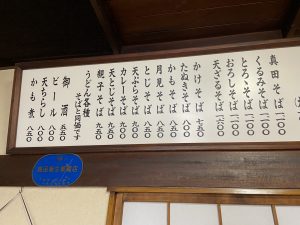 真田そば 一二〇〇
くるみそば 一二〇〇
とろろそば 一二〇〇
おろしそば 一二〇〇
天ざるそば 一二〇〇
かけそば 七五〇
たぬきそば 八〇〇
かもそば 九五〇
月見そば 八五〇
とじそば 八五〇
天ぷらそば 九五〇
カレーそば 九五〇
天とじそば 九五〇
親子そば 九五〇
うどん各種
そばと同価です
御酒 五五〇
ビール 八〇〇
天ちらし 八〇〇
かも煮 八五〇